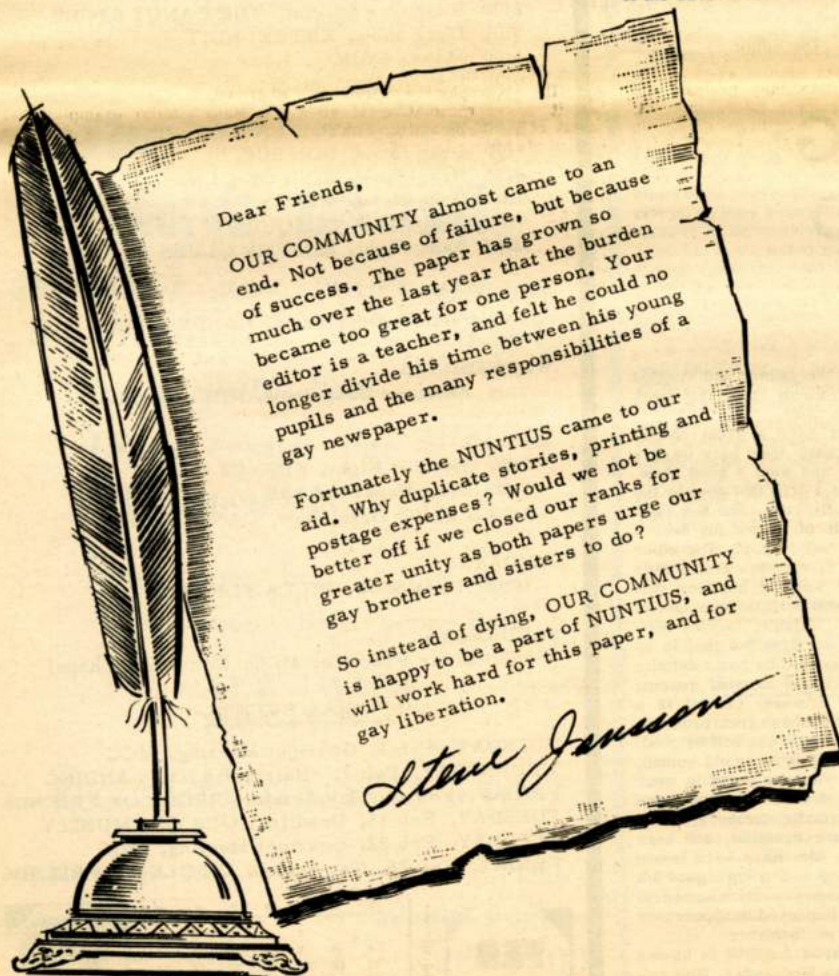 Dear Friends,
OUR COMMUNITY almost came to an
end. Not because of failure, but because
of success. The paper has grown so
much over the last year that the burden
became too great for one person. Your
editor is a teacher, and felt he could no
longer divide his time between his young
pupils and the many responsibilities of a
gay newspaper.
Fortunately the NUNTIUS came to our
aid. Why duplicate stories, printing and
postage expenses? Would we not be
better off if we closed our ranks for
greater unity as both papers urge our
gay brothers and sisters to do?
So instead of dying, OUR COMMUNITY
is happy to be a part of NUNTIUS, and
will work hard for this paper, and for
gay liberation.
Steve Jansson